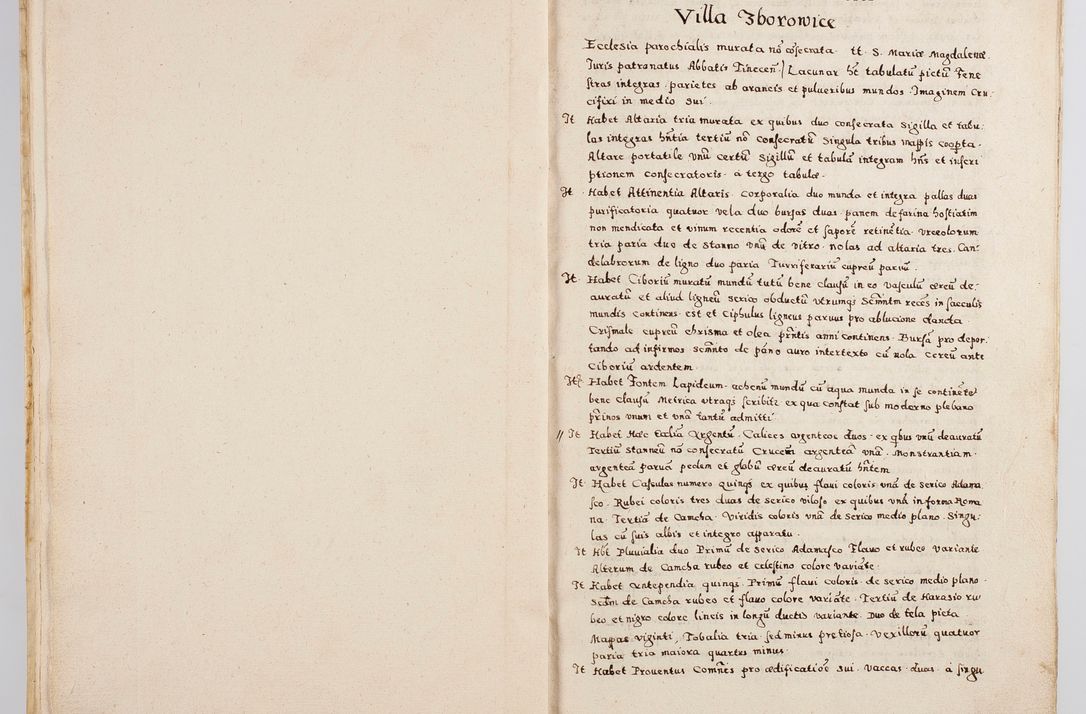 Villa Zborowice
Ecclesia parochialis murata nō cōsecrata tt. S. Mariæ Magdalenæ
Juris patronatus Abbatis Tinecen̄ / Lacunar hēt tabulatū pictū Fene
stras integras parietes ab araneis et pulueribus mundos Imaginem Cru:
cifixi in medio sui
It Habet Altaria tria murata ex quibus duo consecrata Sigilla et tabu:
las integras hn̄tia tertiū nō consecratū Singula tribus mappis coopta
Altare portatile vnū certū Sigillū et tabulā integram hn̄s et inscri
ptionem consecratoris a tergo tabulæ
It Habet Attinentia Altaris Corporalia duo munda et integra pallas duas
purificatoria quatuor vela duo bursas duas panem de farina hostiatim
non mendicata et vinum recentia odorē et saporē retinētia vrceolorum
tria paria duo de stanno vnū de vitro nolas ad altaria tres Can:
delabrorum de ligno duo paria Turriferariū cupreū paruū
It Habet Ciboriū muratū mundū tutū bene clausū in eo vasculū æreū de:
auratū et aliud ligneū serico obductū vtrumq; Scm̄ntm recēs in sacculis
mundis continens est et Ciphulus ligneus paruus pro ablucione danda
Crismale cupreū chrisma et olea prn̄tis anni continens Bursā pro depor
tando ad infirmos scm̄nto de pāno auro intertexto cū nola Cereū ante
Ciboriū ardentem
It Habet Fontem Lapideum ahenū mundū cū aqua munda in se continētē
bene clausū Metrica vtraq; scribitr ex qua constat sub moderno plebano
prīnos vnum et vnā tantū admitti
// It Habet Hæc ex Argentū Calices argenteos duos ex qbus vnū deauratū
Tertiū stanneū nō consecratū Crucem argenteā vnā Monstrantiam
argenteā paruā pedem et globū æreū deauratū hn̄tem
It Habet Casulas numero quinq; ex quibus flaui coloris vnā de serico Adama
sco Rubei coloris tres duas de serico viloso ex quibus vnā in forma Roma
na Tertiā de Camcha Viridis coloris vnā de serico medio plano Singu:
las cū suis albis et integro apparatu
It Hbt Pluuialia duo Primū de serico Adamasco Flauo et rubeo variante
Alterum de Camcha rubeo et celestino colore variāte
It Habet Antependia quinq; Primū flaui coloris de serico medio plano
Scdm de Camcha rubeo et flauo colore variāte Tertiū de Harasio ru
beo et nigro colore lineis in longū ductis variante Duo de tela picta
Mappas viginti, Tobalia tria sed minus pretiosa Vexillorū quatuor
paria tria maiora quartus minus
It Habet Prouentus Comn̄es pro ædificatiōe sui vaccas duas a singu